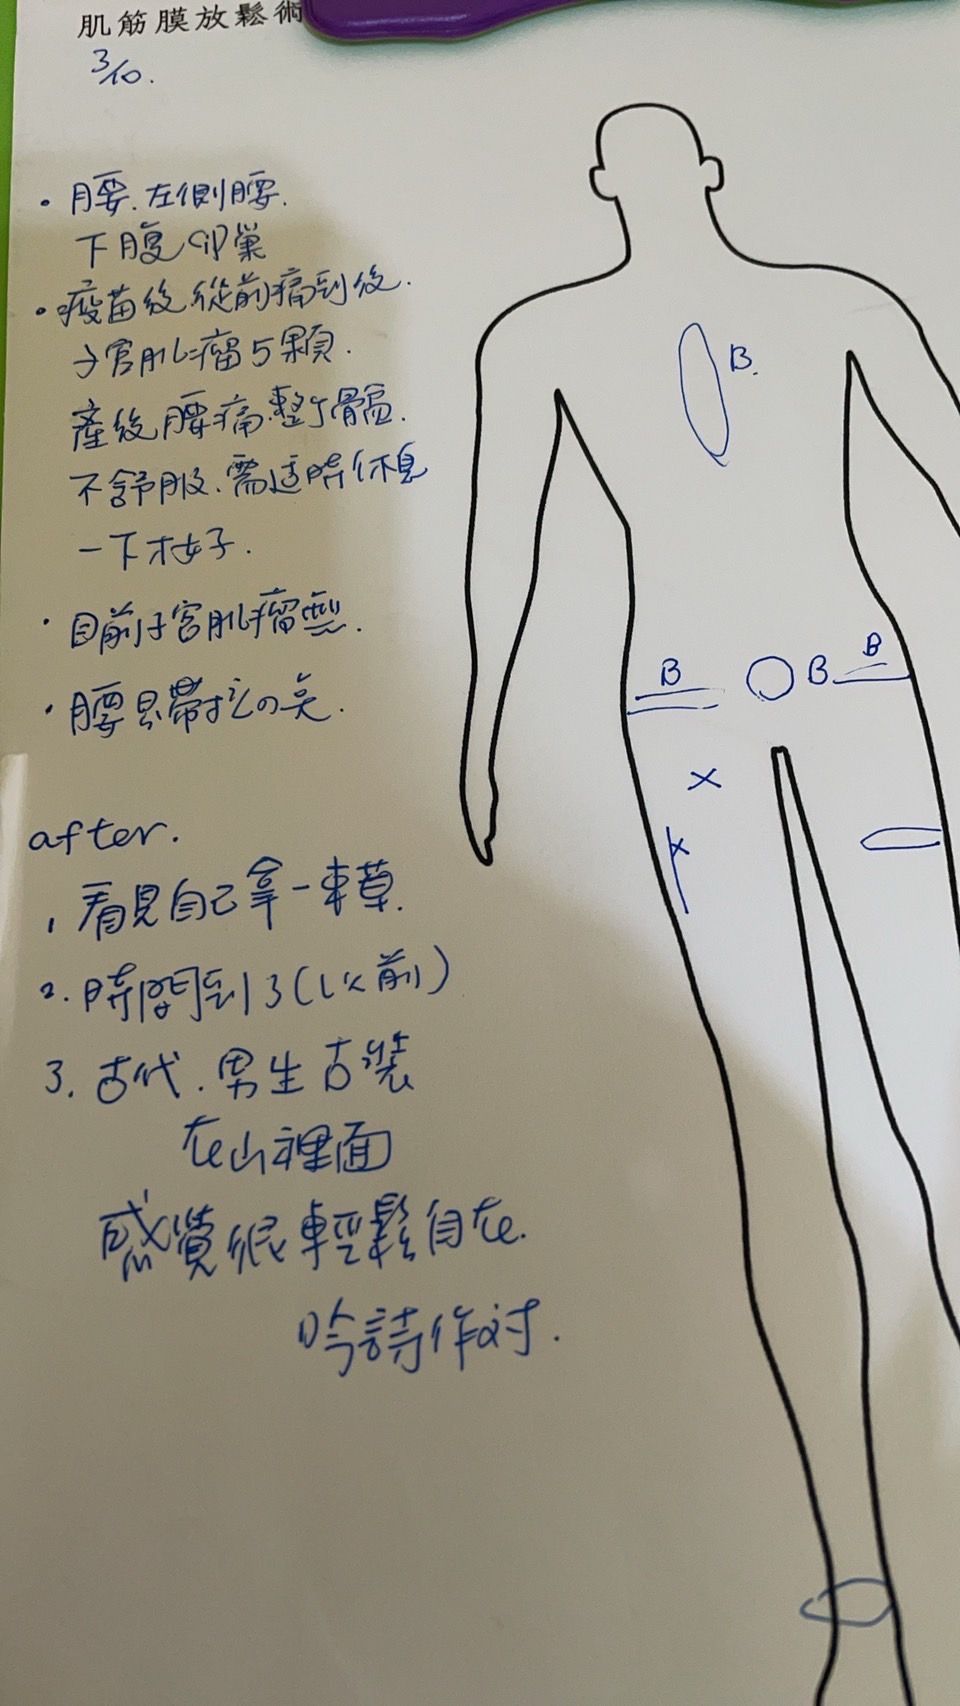 肌筋膜放鬆術
3/10.
• 腰.左側腰.
下腹 卵巢
• 疫苗後 從前痛到後.
子宮肌瘤5顆.
產後腰痛.整個髖.
不舒服.需適時休息
一下才好.
• 目前子宮肌瘤
• 腰
after.
1. 看見自己拿一束草.
2. 時間到了(以前)
3. 古代.男生古裝
在山裡面
感覺很輕鬆自在.
吟詩作対.
B.
B
B
B
x
x